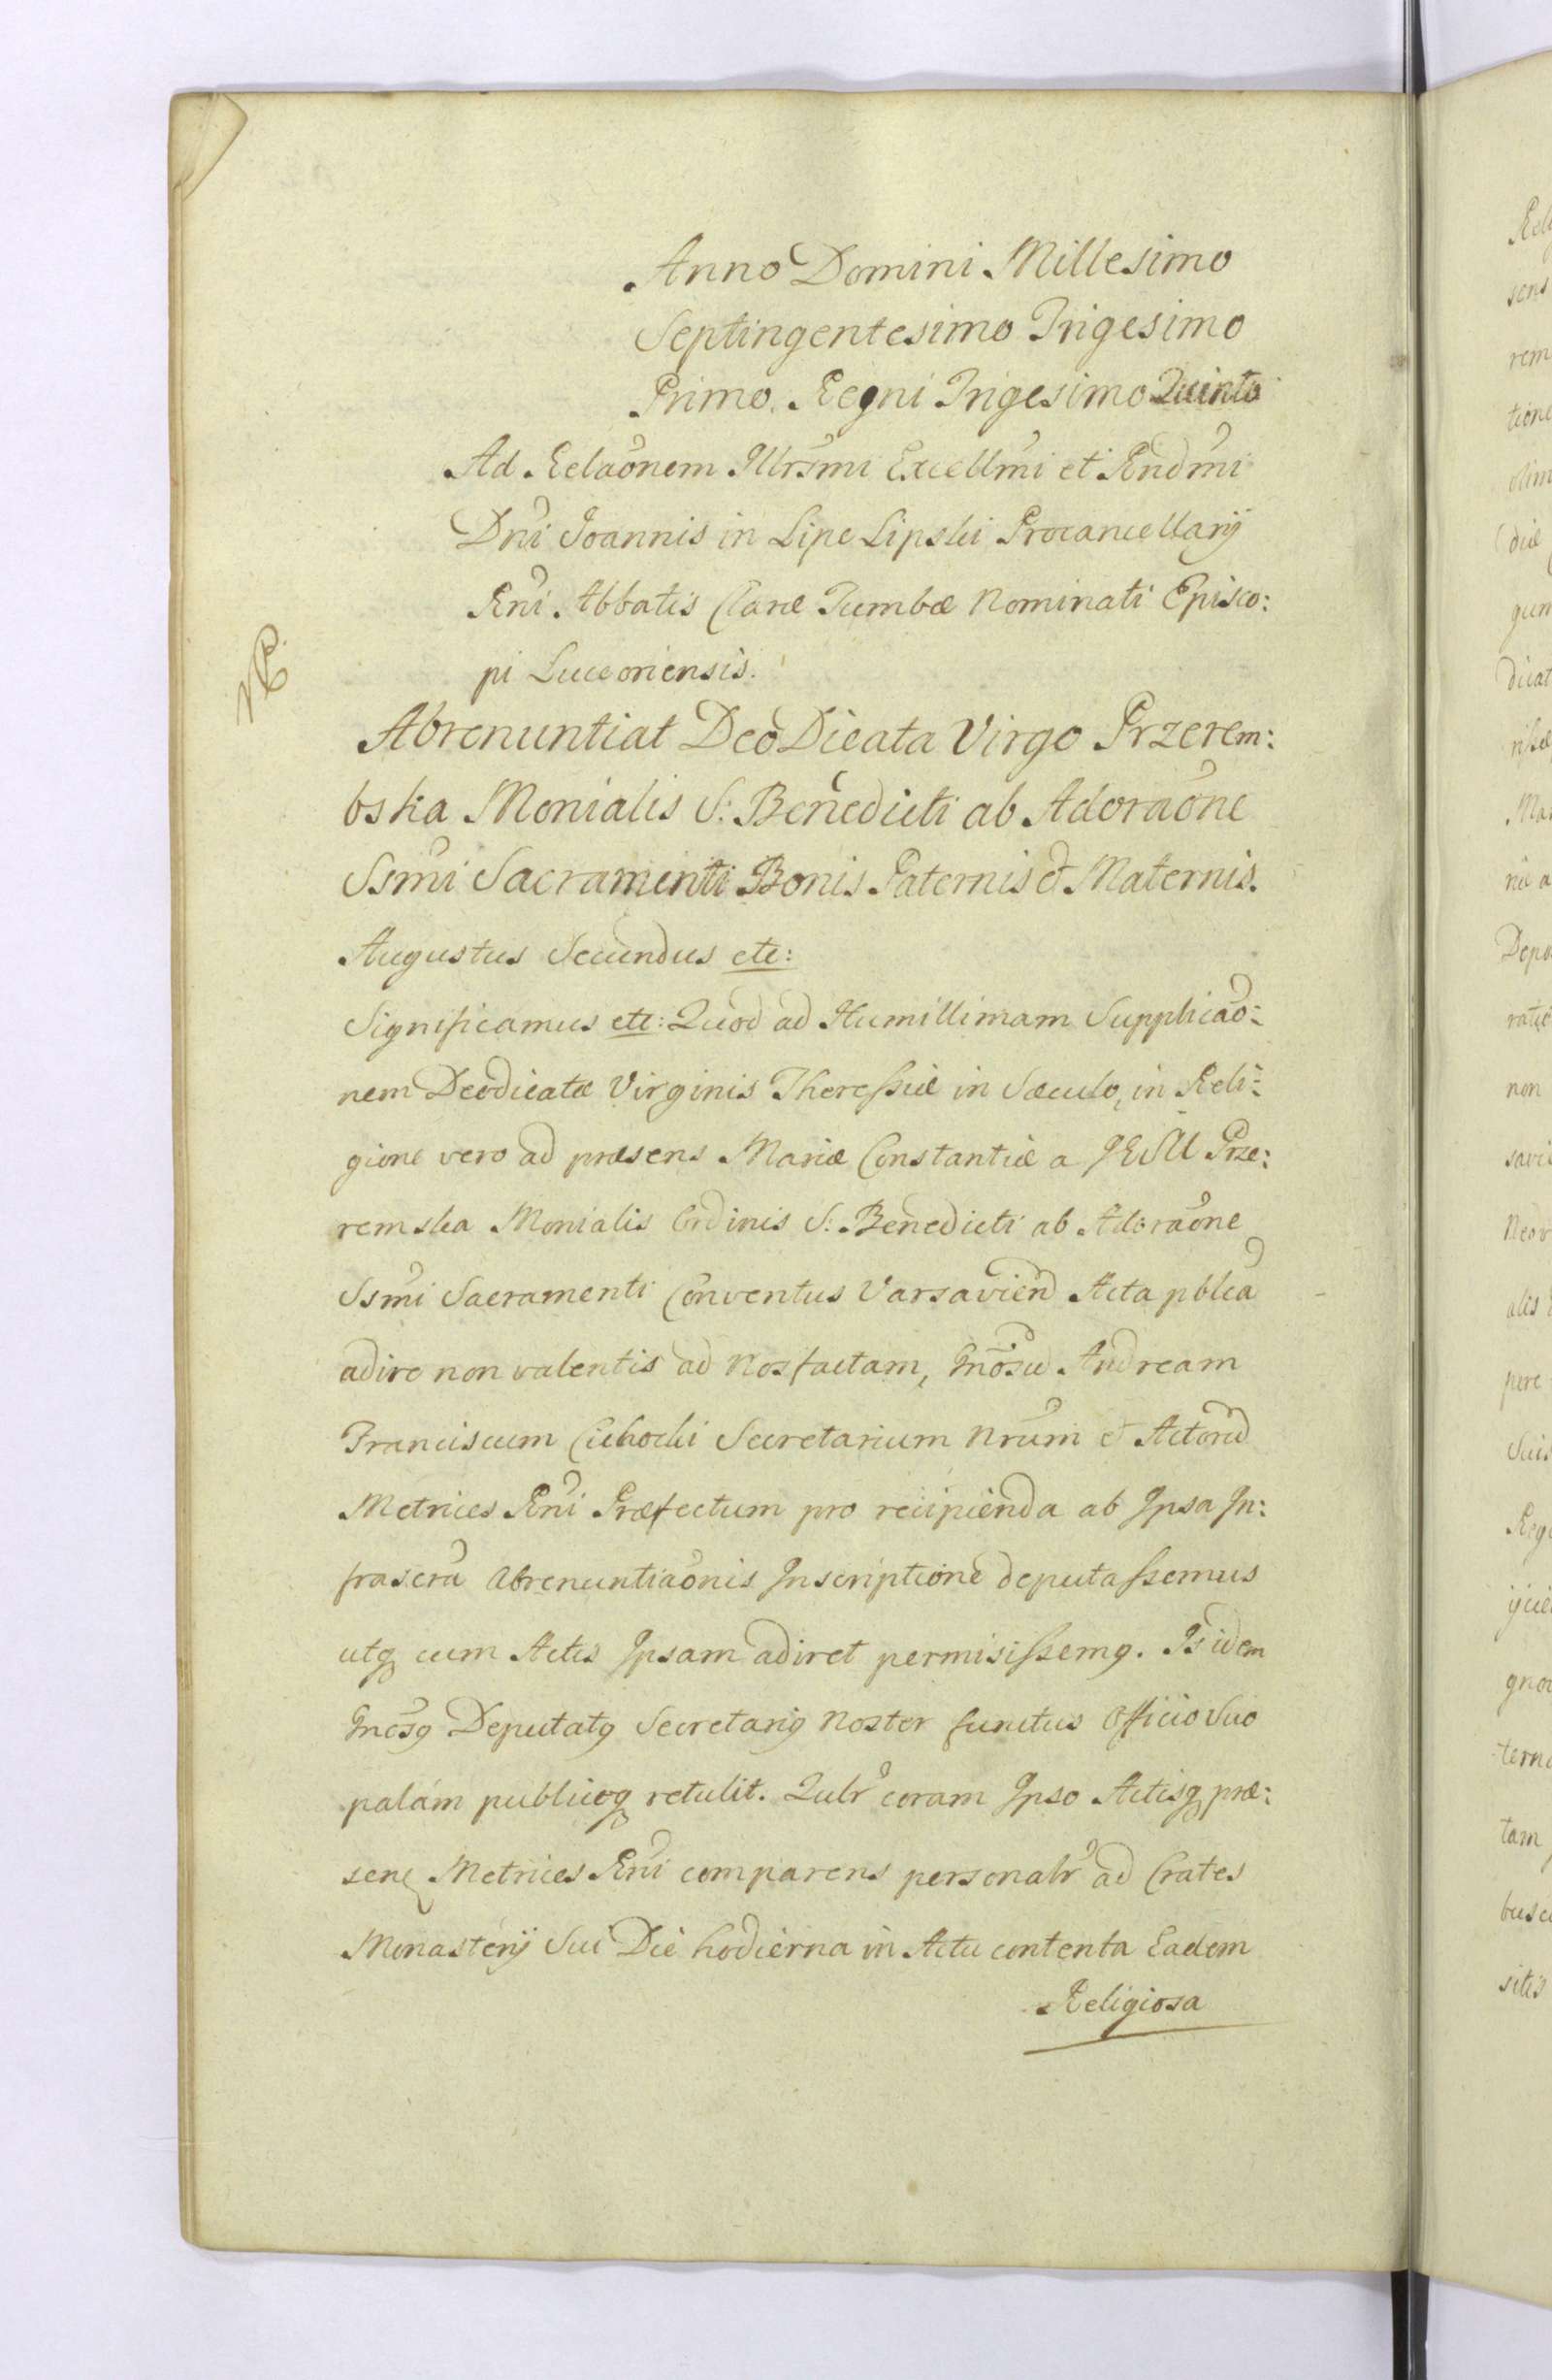 Anno Domini Millesimo
Septingentesimo Trigesimo
Primo. Regni Trigesimo Quinto
Ad Relaōnem Illrsmī Excellmī et Rndmī
Dnī Joannis in Lipe Lipski Procancellarÿ
Rnī. Abbatis Claræ Tumbæ Nominati Episco:
pi Luceoriensis.
Abrenuntiat DeoDicata Virgo Przerem:
bska Monialis S: Benedicti ab Adoraōne
Ssmī Sacramenti Bonis Paternis et Maternis.
Augustus Secundus etc:
Significamus etc: Quod ad Humillimam Supplicaō:
nem Deodicatæ Virginis Theressiæ in Sæculo, in Reli:
gione vero ad præsens Mariæ Constantiæ a JESU Prze:
remska Monialis Ordinis S: Benedicti ab Adoraōne
Ssmī Sacramenti Conventus Varsavien Acta pblca
adire non valentis ad Nos factam, Gnōsū Andream
Franciscum Cichocki Secretarium Nrūm et Actorū
Metrices Rnī Præfectum pro recipienda ab Ipsa In:
frascrā Abrenuntiaōnis Inscriptione deputassemus
utq cum Actis Ipsam adiret permisissemq. Is idem
Gnōsq Deputatq Secretariq Noster functus Officio Suo
palám publiceq retulit. Qulr coram Ipso Actisq præ:
senq Metrices Rnī comparens personalr ad Crates
Monasterÿ Sui Die hodierna in Actu contenta Eadem
Religiosa